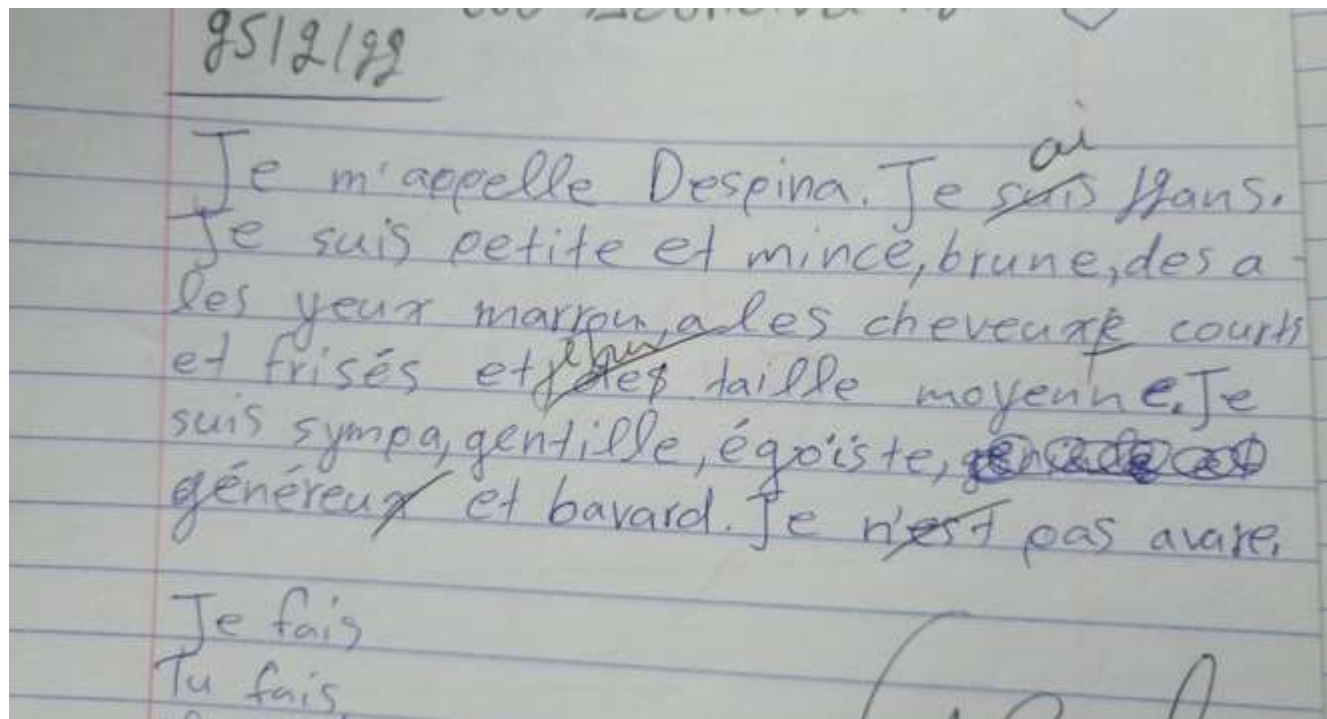 Je m'appelle Despina. Je ai suis ans.
Je suis petite et mince, brune, des a
les yeux marron, a les cheveux courts
et frisés et taille moyenne. Je
suis sympa, gentille, égoïste,
généreux et bavard. Je n'est pas avare.
Je fais
Tu fais